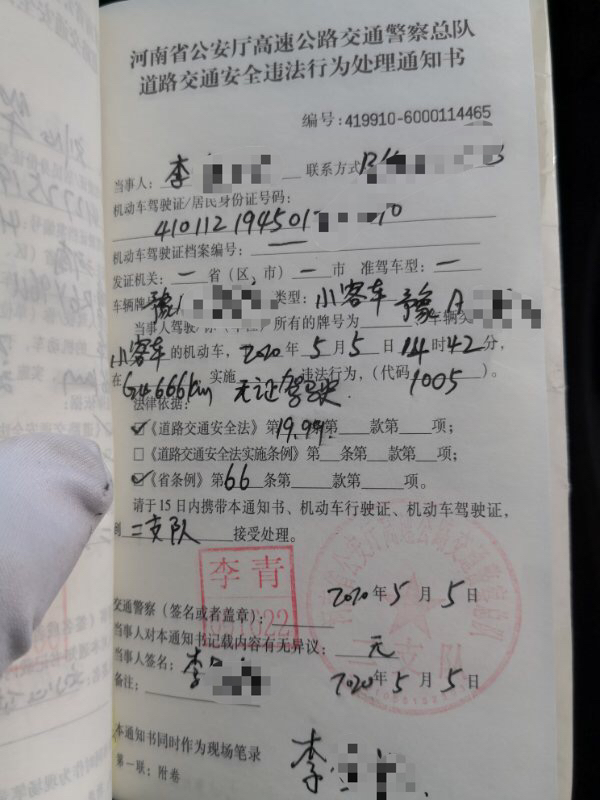 河南省公安厅高速公路交通警察总队
道路交通安全违法行为处理通知书
编号:419910-6000114465
当事人:李 联系方式
机动车驾驶证/居民身份证号码:
410112194501
机动车驾驶证档案编号: 一
发证机关:一省(区,市)一市 准驾车型:一
车辆牌 豫 类型:小客车 豫A
当事人驾驶 所有的牌号为
小客车的机动车, 2020年5月5日14时42分,
在 666km 实施 无证驾驶 违法行为,(代码1005)。
法律依据:
☑《道路交通安全法》第19.99 第 款第 项;
□《道路交通安全法实施条例》第 条第 款第 项;
☑《省条例》第66条第 款第 项。
请于15日内携带本通知书、机动车行驶证、机动车驾驶证,
到二支队接受处理。
李青
2020年5月5日
交通警察(签名或者盖章):
当事人对本通知书记载内容有无异议: 无
当事人签名:李
2020年5月5日
备注:
本通知书同时作为现场笔录
第一联:附卷
李